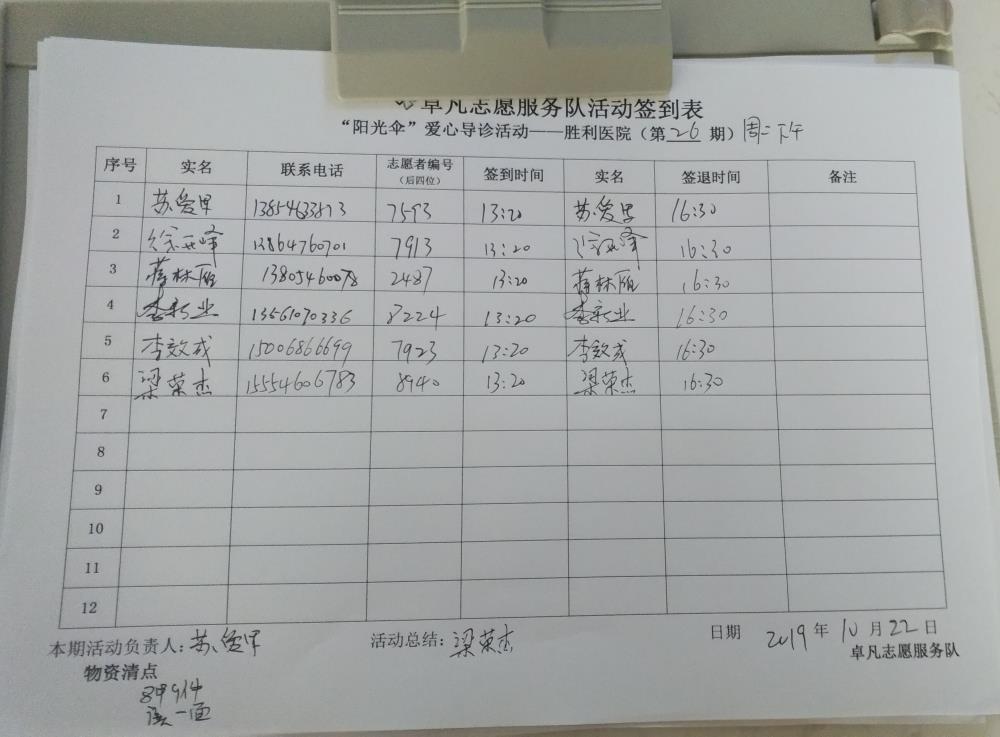 卓凡志愿服务队活动签到表
“阳光伞”爱心导诊活动——胜利医院（第 26 期）周二下午
序号 实名 联系电话 志愿者编号（后四位） 签到时间 实名 签退时间 备注
1 苏爱军 13854633873 7593 13:20 苏爱军 16:30
2 13864760701 7913 13:20 16:30
3 蒋林雁 13805460078 2487 13:20 蒋林雁 16:30
4 李新业 13561070336 8224 13:20 李新业 16:30
5 李效成 15006866699 7923 13:20 李效成 16:30
6 梁荣杰 15554606783 8940 13:20 梁荣杰 16:30
7
8
9
10
11
12
本期活动负责人：苏爱军 活动总结：梁荣杰 日期 2019 年 10 月 22 日
卓凡志愿服务队
物资清点
一面